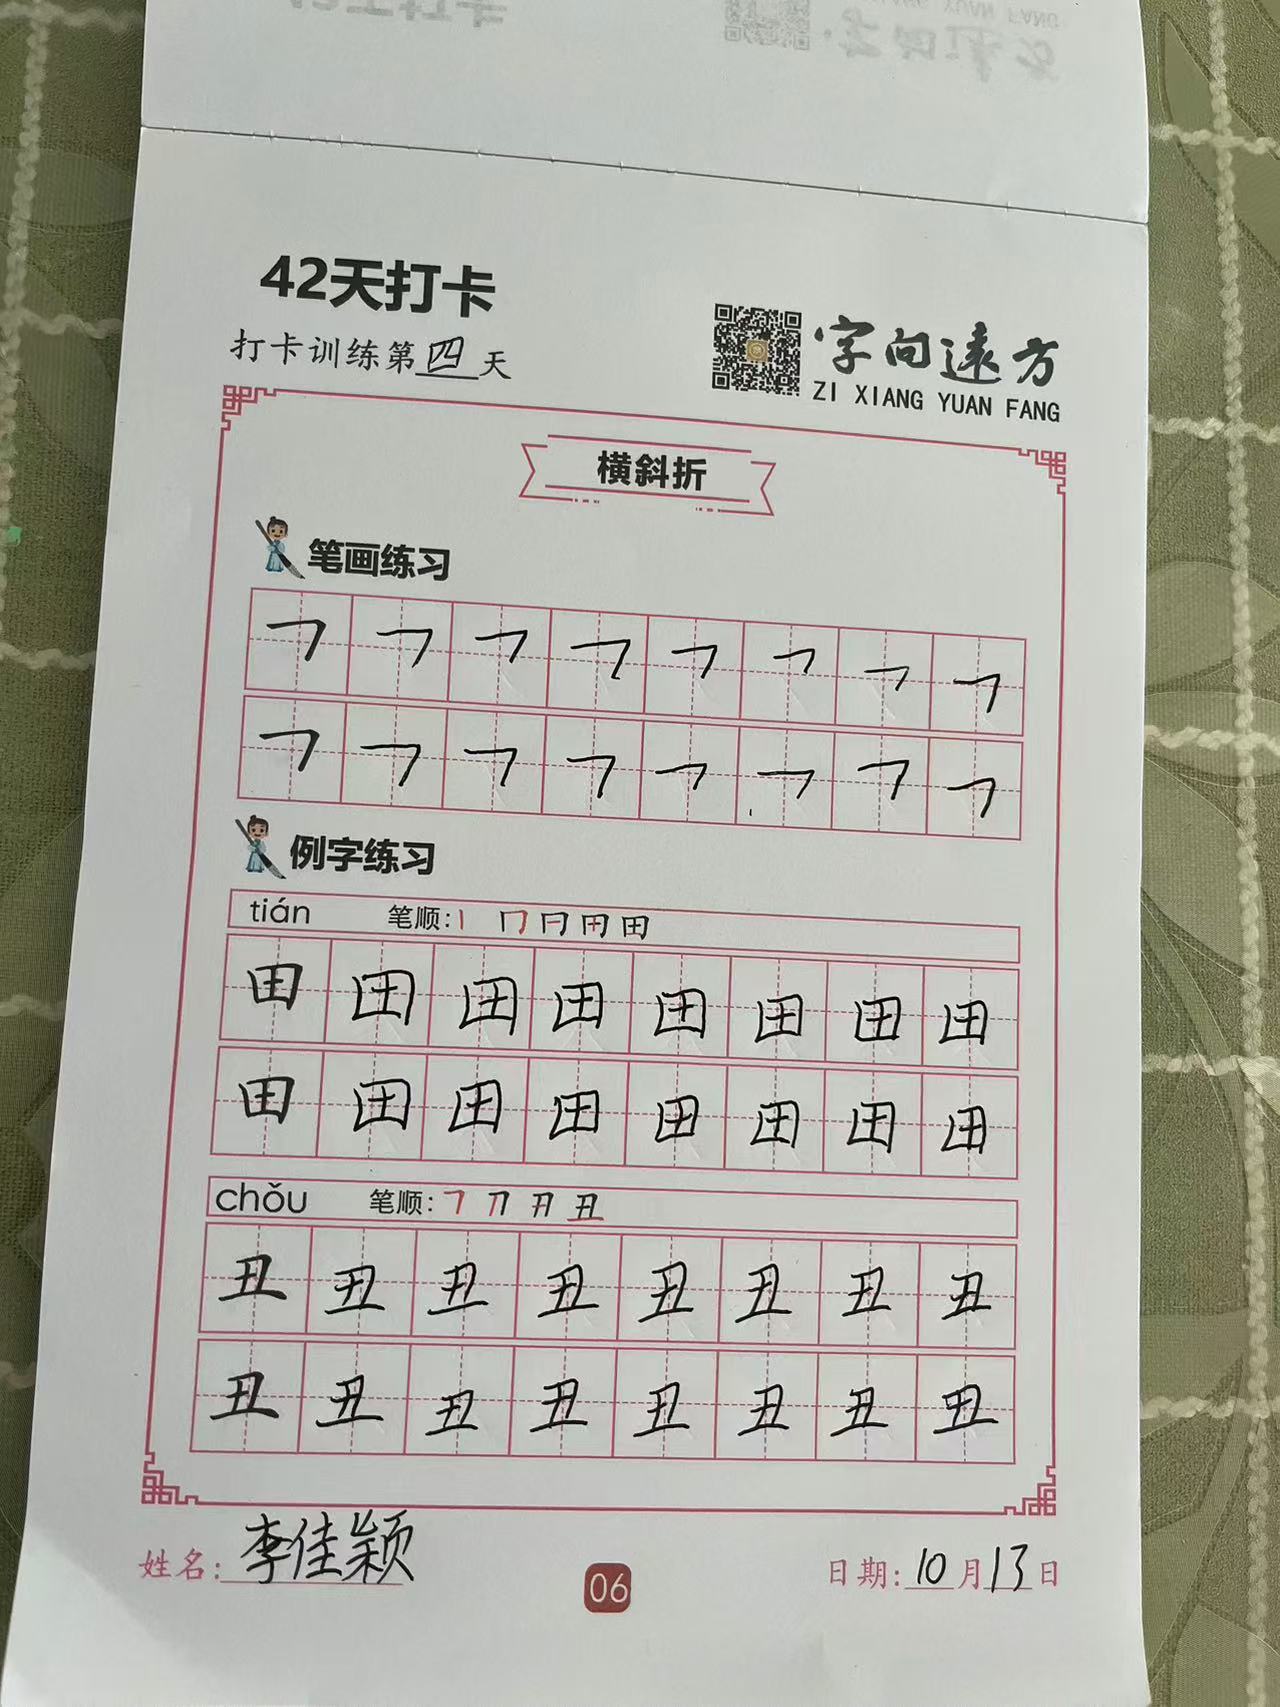 42天打卡
打卡训练第四天
字向遠方
ZI XIANG YUAN FANG
横斜折
笔画练习
㇕ ㇕ ㇕ ㇕ ㇕ ㇕ ㇕ ㇕
㇕ ㇕ ㇕ ㇕ ㇕ ㇕ ㇕ ㇕
例字练习
tián 笔顺: 丨 冂 冃 用 田
田 田 田 田 田 田 田 田
田 田 田 田 田 田 田 田
chǒu 笔顺: ㇕ 刀 丑
丑 丑 丑 丑 丑 丑 丑 丑
丑 丑 丑 丑 丑 丑 丑 丑
姓名: 李佳颖
06
日期: 10月13日